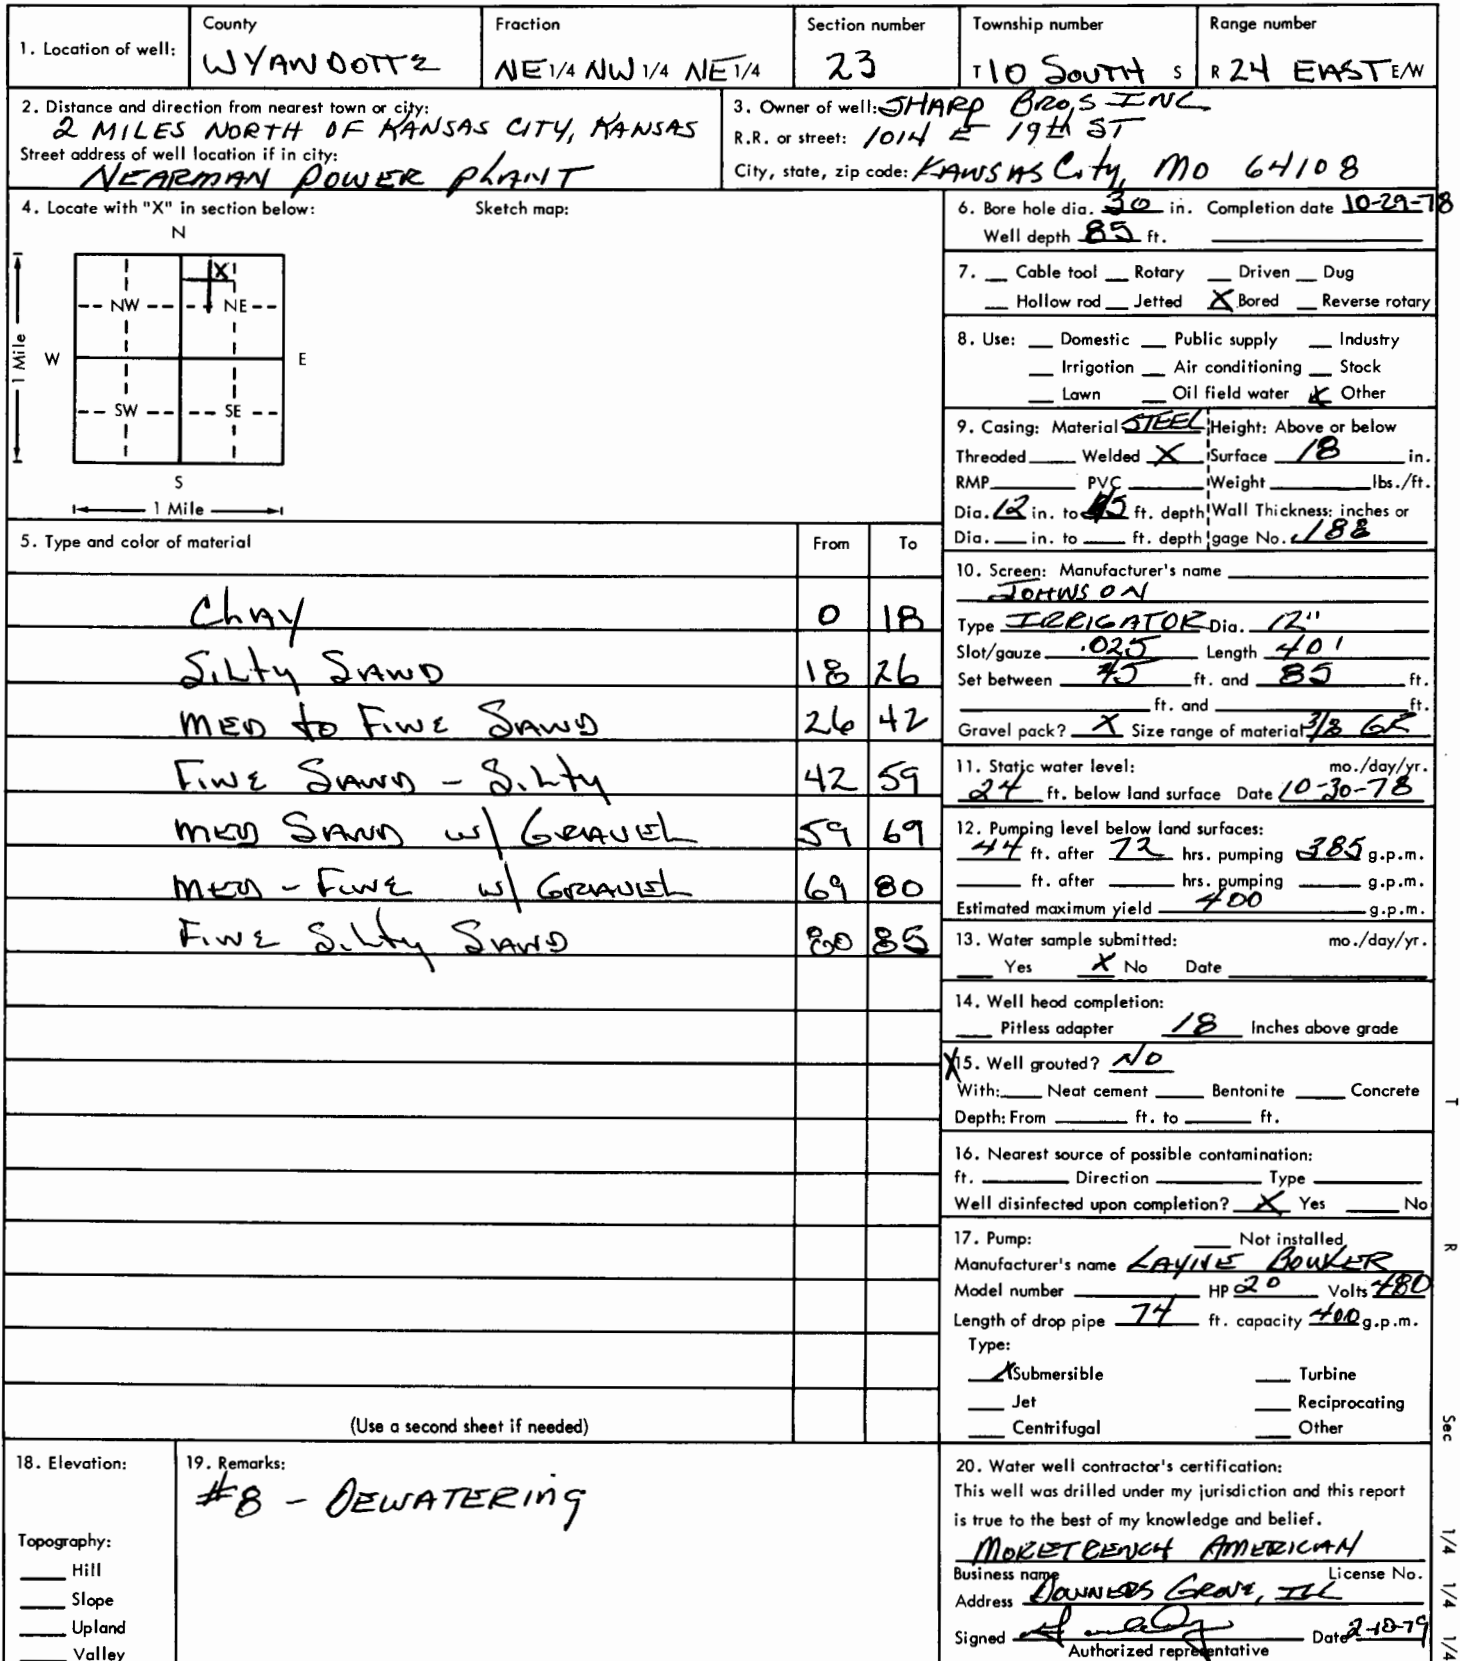 1. Location of well: County WYANDOTTE Fraction NE 1/4 NW 1/4 NE 1/4 Section number 23 Township number T 10 SOUTH S Range number R 24 EAST E/W
2. Distance and direction from nearest town or city:
2 MILES NORTH OF KANSAS CITY, KANSAS
Street address of well location if in city:
NEARMAN POWER PLANT
3. Owner of well: SHARP BRO,S INC
R.R. or street: 1014 E 19th ST
City, state, zip code: KANSAS City, MO 64108
4. Locate with "X" in section below: Sketch map:
N
X
NW NE
W E
1 Mile
SW SE
S
1 Mile
6. Bore hole dia. 30 in. Completion date 10-29-78
Well depth 85 ft.
7. Cable tool Rotary Driven Dug
Hollow rod Jetted X Bored Reverse rotary
8. Use: Domestic Public supply Industry
Irrigation Air conditioning Stock
Lawn Oil field water X Other
9. Casing: Material STEEL Height: Above or below
Threaded Welded X Surface 18 in.
RMP PVC Weight lbs./ft.
Dia. 12 in. to 45 ft. depth Wall Thickness: inches or
Dia. in. to ft. depth gage No. .188
5. Type and color of material From To
CLAY 0 18
SILTY SAND 18 26
MED to FINE SAND 26 42
FINE SAND - SILTY 42 59
MED SAND w/ GRAVEL 59 69
MED - FINE w/ GRAVEL 69 80
FINE SILTY SAND 80 85
(Use a second sheet if needed)
10. Screen: Manufacturer's name
JOHNSON
Type IRRIGATOR Dia. 12"
Slot/gauze .025 Length 40'
Set between 45 ft. and 85 ft.
ft. and ft.
Gravel pack? X Size range of material 3/8 GR
11. Static water level: mo./day/yr.
24 ft. below land surface Date 10-30-78
12. Pumping level below land surfaces:
44 ft. after 72 hrs. pumping 385 g.p.m.
ft. after hrs. pumping g.p.m.
Estimated maximum yield 400 g.p.m.
13. Water sample submitted: mo./day/yr.
Yes X No Date
14. Well head completion:
Pitless adapter 18 Inches above grade
X 15. Well grouted? NO
With: Neat cement Bentonite Concrete
Depth: From ft. to ft.
16. Nearest source of possible contamination:
ft. Direction Type
Well disinfected upon completion? X Yes No
17. Pump: Not installed
Manufacturer's name LAYNE BOWLER
Model number HP 20 Volts 480
Length of drop pipe 74 ft. capacity 400 g.p.m.
Type:
X Submersible Turbine
Jet Reciprocating
Centrifugal Other
18. Elevation:
Topography:
Hill
Slope
Upland
Valley
19. Remarks:
#8 - DEWATERING
20. Water well contractor's certification:
This well was drilled under my jurisdiction and this report
is true to the best of my knowledge and belief.
MORETRENCH AMERICAN
Business name License No.
Address DOWNERS GROVE, ILL
Signed Date 2-10-79
Authorized representative
T
R
Sec
1/4 1/4 1/4